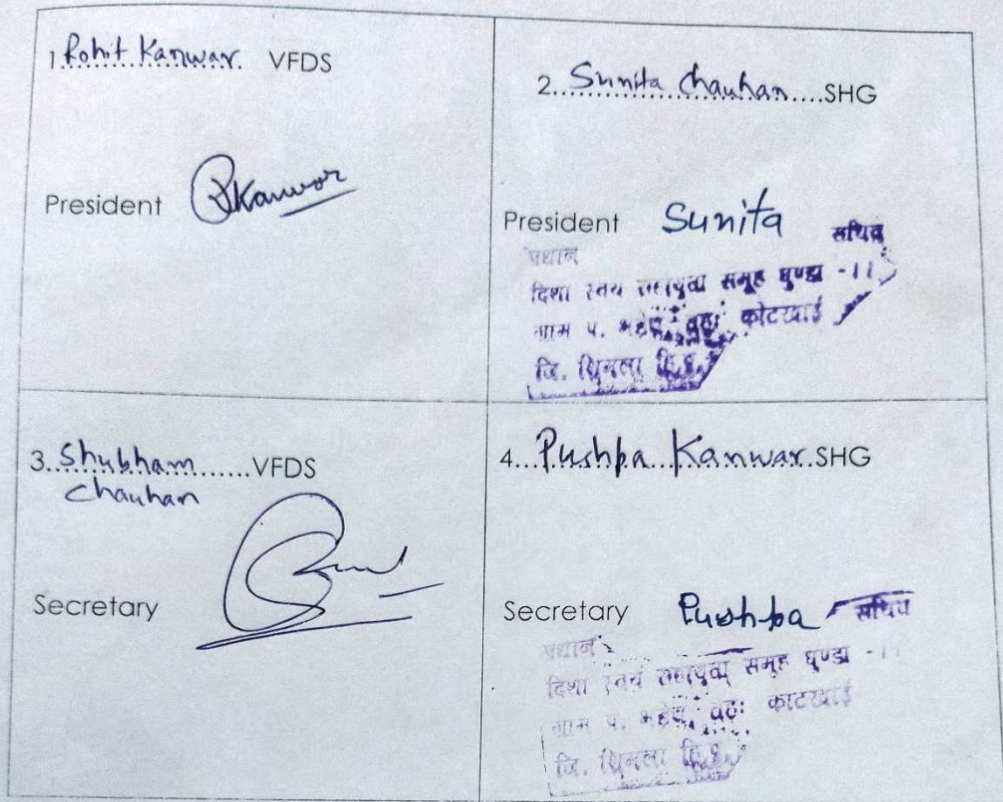 1.Rohit Kanwar. VFDS
President RKanwar
2...Sunita Chauhan....SHG
President Sunita
प्रधान सचिव
दिशा स्वयं सहायता समूह घुण्डा -11
ग्राम प. तह. कोटखाई
जि. शिमला हि.प्र.
3.Shubham.......VFDS
Chauhan
Secretary
4...Pushpa Kanwar.SHG
Secretary Pushpa
प्रधान सचिव
दिशा स्वयं सहायता समूह घुण्डा -11
ग्राम प. तह. कोटखाई
जि. शिमला हि.प्र.